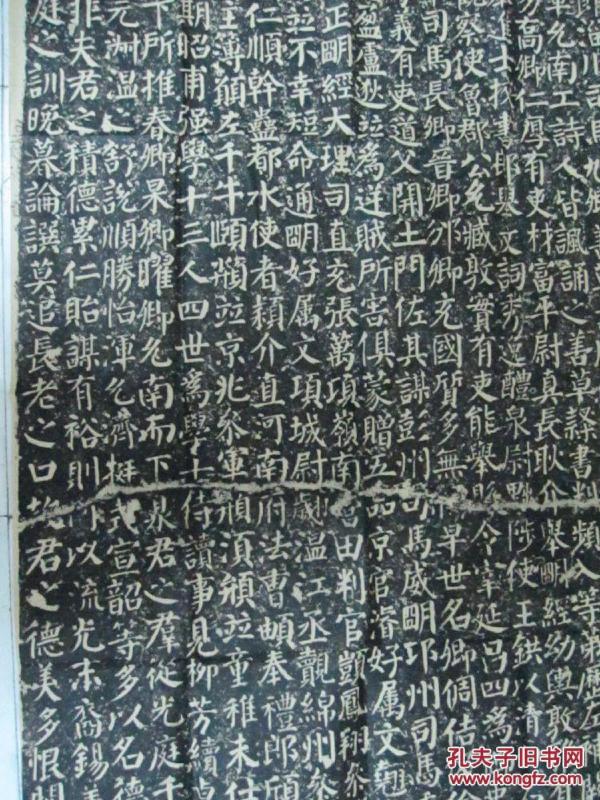 允南工詩人皆諷誦之善草隸書判頻入等第屢
喬卿仁厚有吏材富平尉真長耿介舉明經幼輿敦雅
校書郎舉文詞秀逸醴泉尉黜陟使王鉷以清
察使魯郡公允臧敦實有吏能舉縣令宰延昌四為
司馬長卿晉卿邠卿充國質多無早世名卿倜佶
義有吏道父開土門佐其謀彭州司馬威明邛州司馬
盈盧逖並為逆賊所害俱蒙贈五品京官濬好属文翹
正頲明經大理司直充張萬頃嶺南營田判官顗鳳翔參
並不幸短命通明好属文項城尉翽溫江丞覿綿州參
仁順幹蠱都水使者頍介直河南府法曹頔奉禮郎頎
主薄顛左千牛頤頲並京兆參軍頎須頯並童稚未仕
期昭甫强學十三人四世為學士侍讀事見柳芳續
下所推春卿杲卿曜卿允南而下泉君之群從光庭千
元淑溫之舒說順勝怡渾允濟挺式宣韶等多以名德
非夫君之積德累仁貽謀有裕則以流光末裔錫羨
庭之訓晚暮論譔莫追長老之口故君之德美多恨闕
孔夫子旧书网
www.kongfz.com